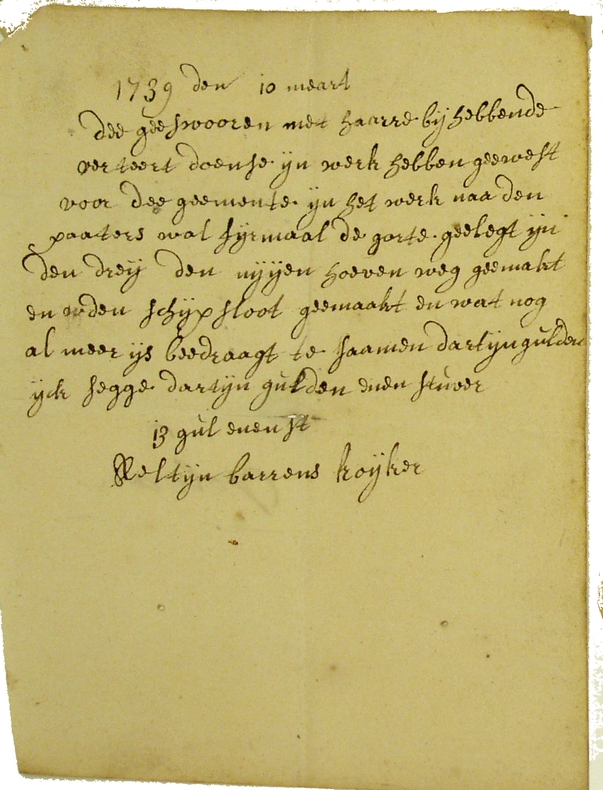 1739 den 10 meart
dee geeswooren met haarre bij hebbende
verteert doense yn werk hebben geewest
voor dee geemente yn het werk naa den
paaters wal syrmaal de gorte geelegt yn
den dreij den nyyen hoeven weg geemakt
en den schijpsloot geemaakt en wat nog
al meer ijs beedraagt te saamen dartyn gulden
yck segge dartyn gulden enen stuver
13 gul enen st
barrens koyker